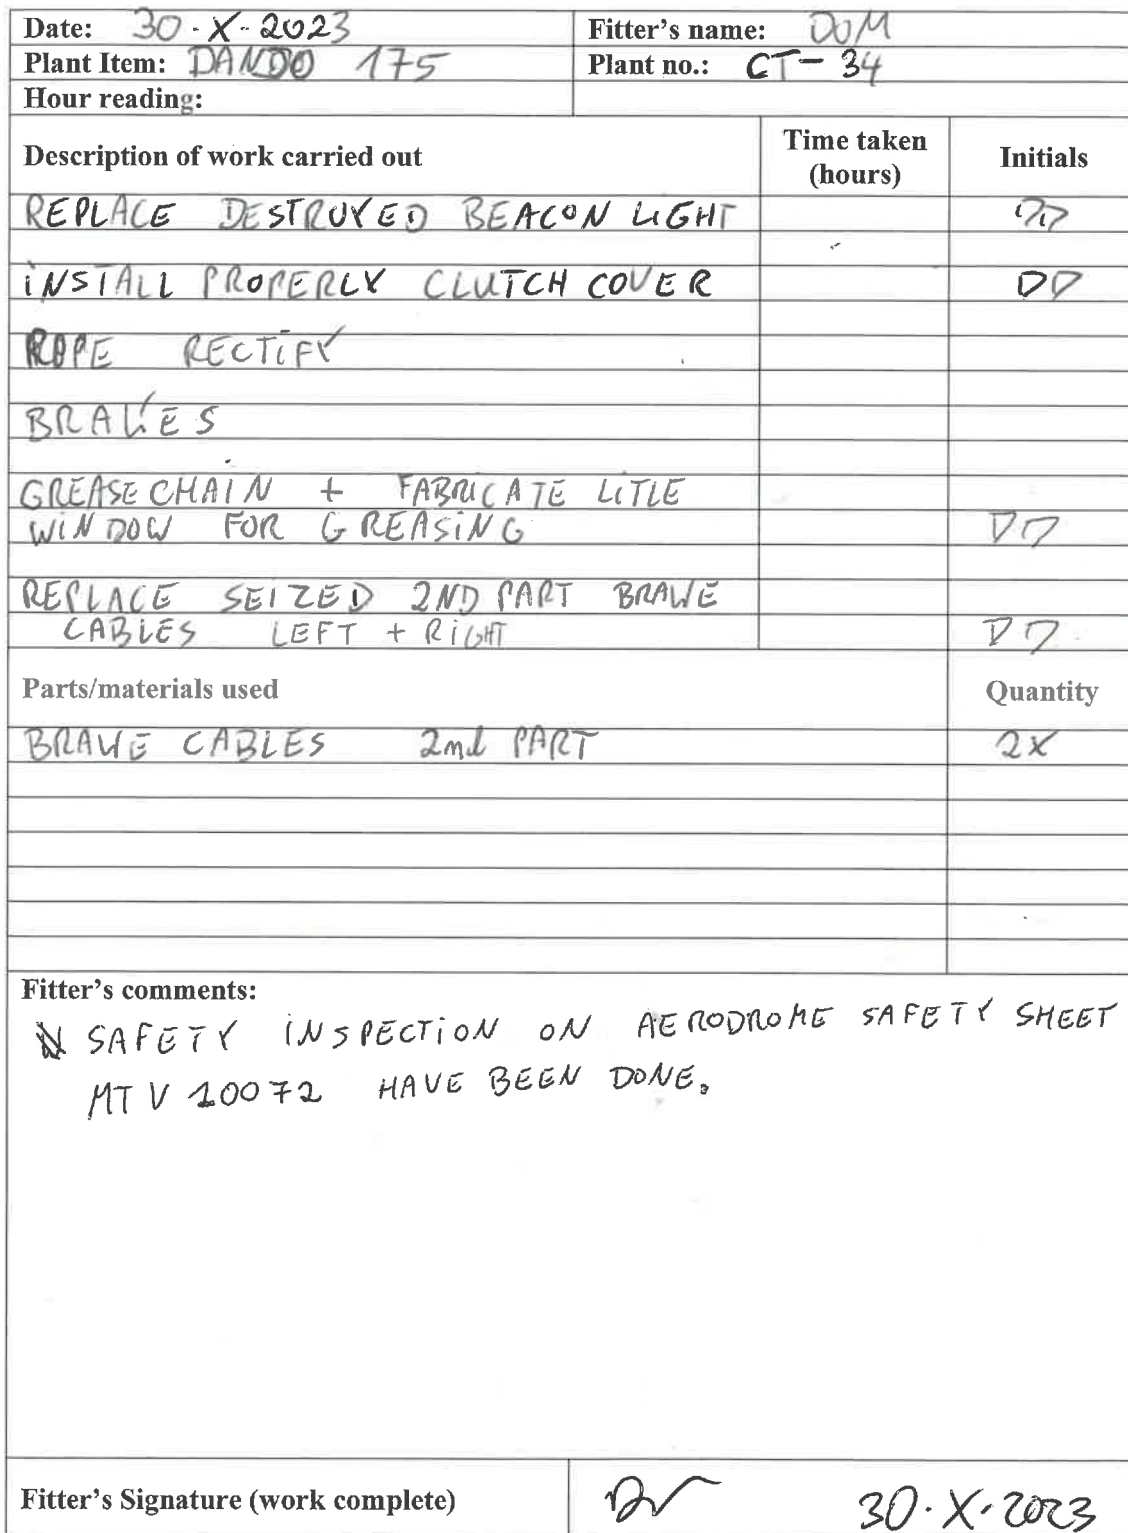 Date: 30-X-2023 Fitter's name: DOM
Plant Item: DANDO 175 Plant no.: CT-34
Hour reading:
Description of work carried out Time taken (hours) Initials
REPLACE DESTROYED BEACON LIGHT DD
INSTALL PROPERLY CLUTCH COVER DD
ROPE RECTIFY
BRAKES
GREASE CHAIN + FABRICATE LITLE
WINDOW FOR GREASING DD
REPLACE SEIZED 2ND PART BRAKE
CABLES LEFT + RIGHT DD
Parts/materials used Quantity
BRAKE CABLES 2nd PART 2X
Fitter's comments:
SAFETY INSPECTION ON AERODROME SAFETY SHEET
MTV 10072 HAVE BEEN DONE.
Fitter's Signature (work complete) 30-X-2023